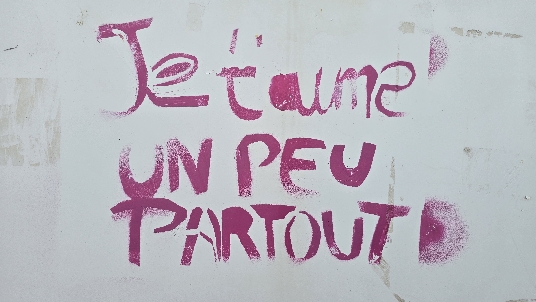 Je t'aime
UN PEU
PARTOUT